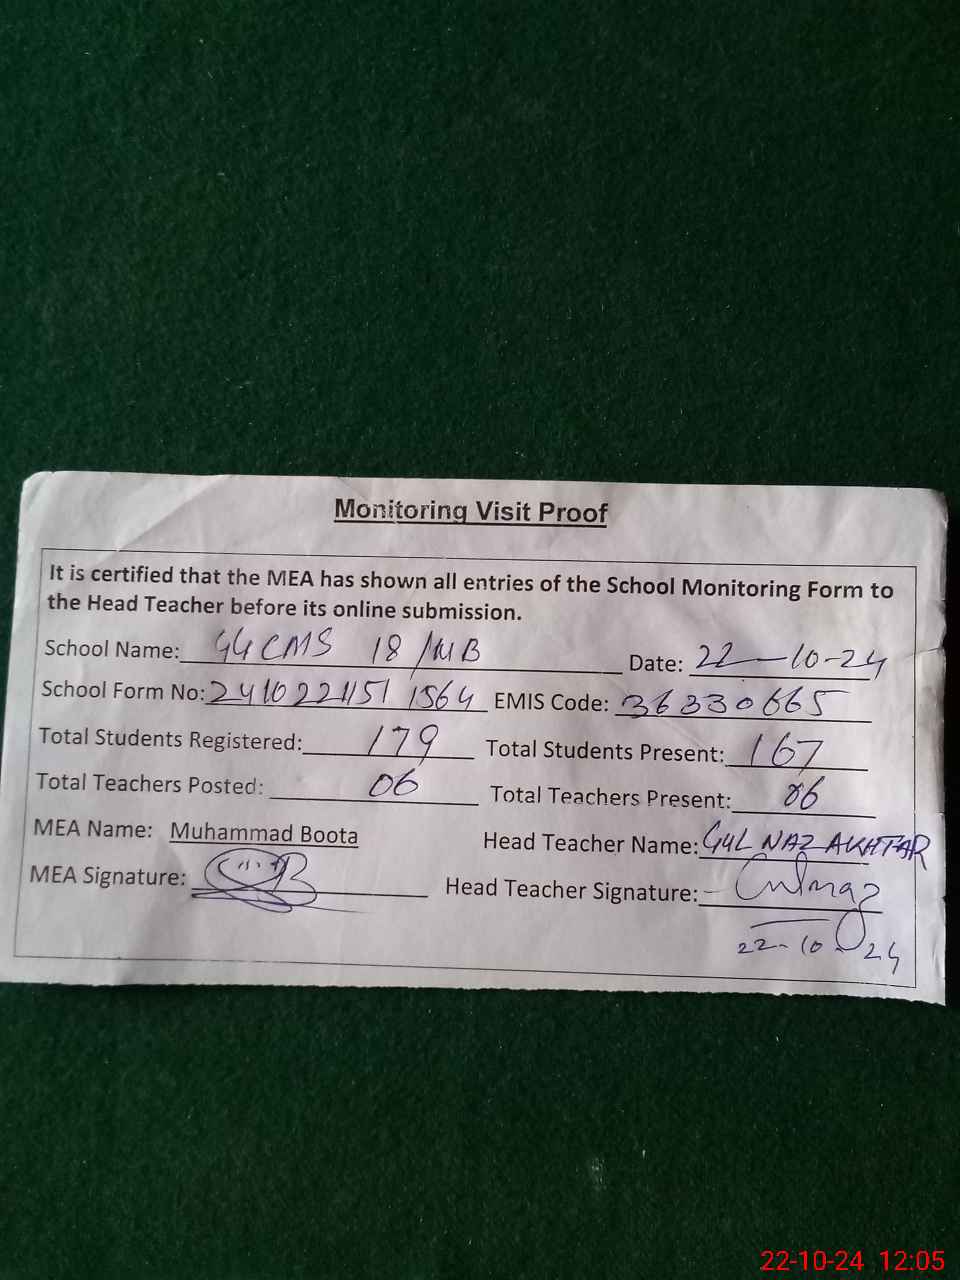 Monitoring Visit Proof
It is certified that the MEA has shown all entries of the School Monitoring Form to
the Head Teacher before its online submission.
School Name: GGCMS 18/MB Date: 22-10-24
School Form No: 2410221151 1564 EMIS Code: 36330665
Total Students Registered: 179 Total Students Present: 167
Total Teachers Posted: 06 Total Teachers Present: 06
MEA Name: Muhammad Boota Head Teacher Name: GUL NAZ AKHTAR
MEA Signature: Head Teacher Signature: Gulnaz
22-10-24
22-10-24 12:05